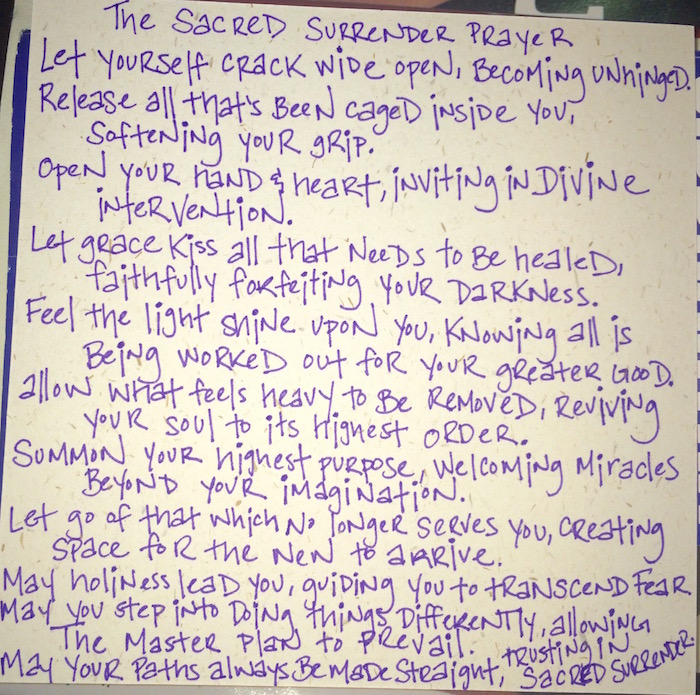 The Sacred Surrender Prayer
Let yourself crack wide open, Becoming unhinged.
Release all that's Been caged inside you,
Softening your grip.
Open your hand & heart, inviting in Divine
intervention.
Let grace kiss all that Needs to Be healed,
faithfully forfeiting your Darkness.
Feel the light shine upon you, Knowing all is
Being worked out for your greater Good.
allow what feels heavy to Be Removed, Reviving
your soul to its highest order.
Summon your highest purpose, Welcoming Miracles
Beyond your imagination.
Let go of that which No longer serves you, creating
space for the new to arrive.
May holiness lead you, guiding you to transcend Fear
May you step into Doing things Differently, allowing
The Master Plan to Prevail.
May your Paths always Be Made Straight, trusting in
Sacred Surrender